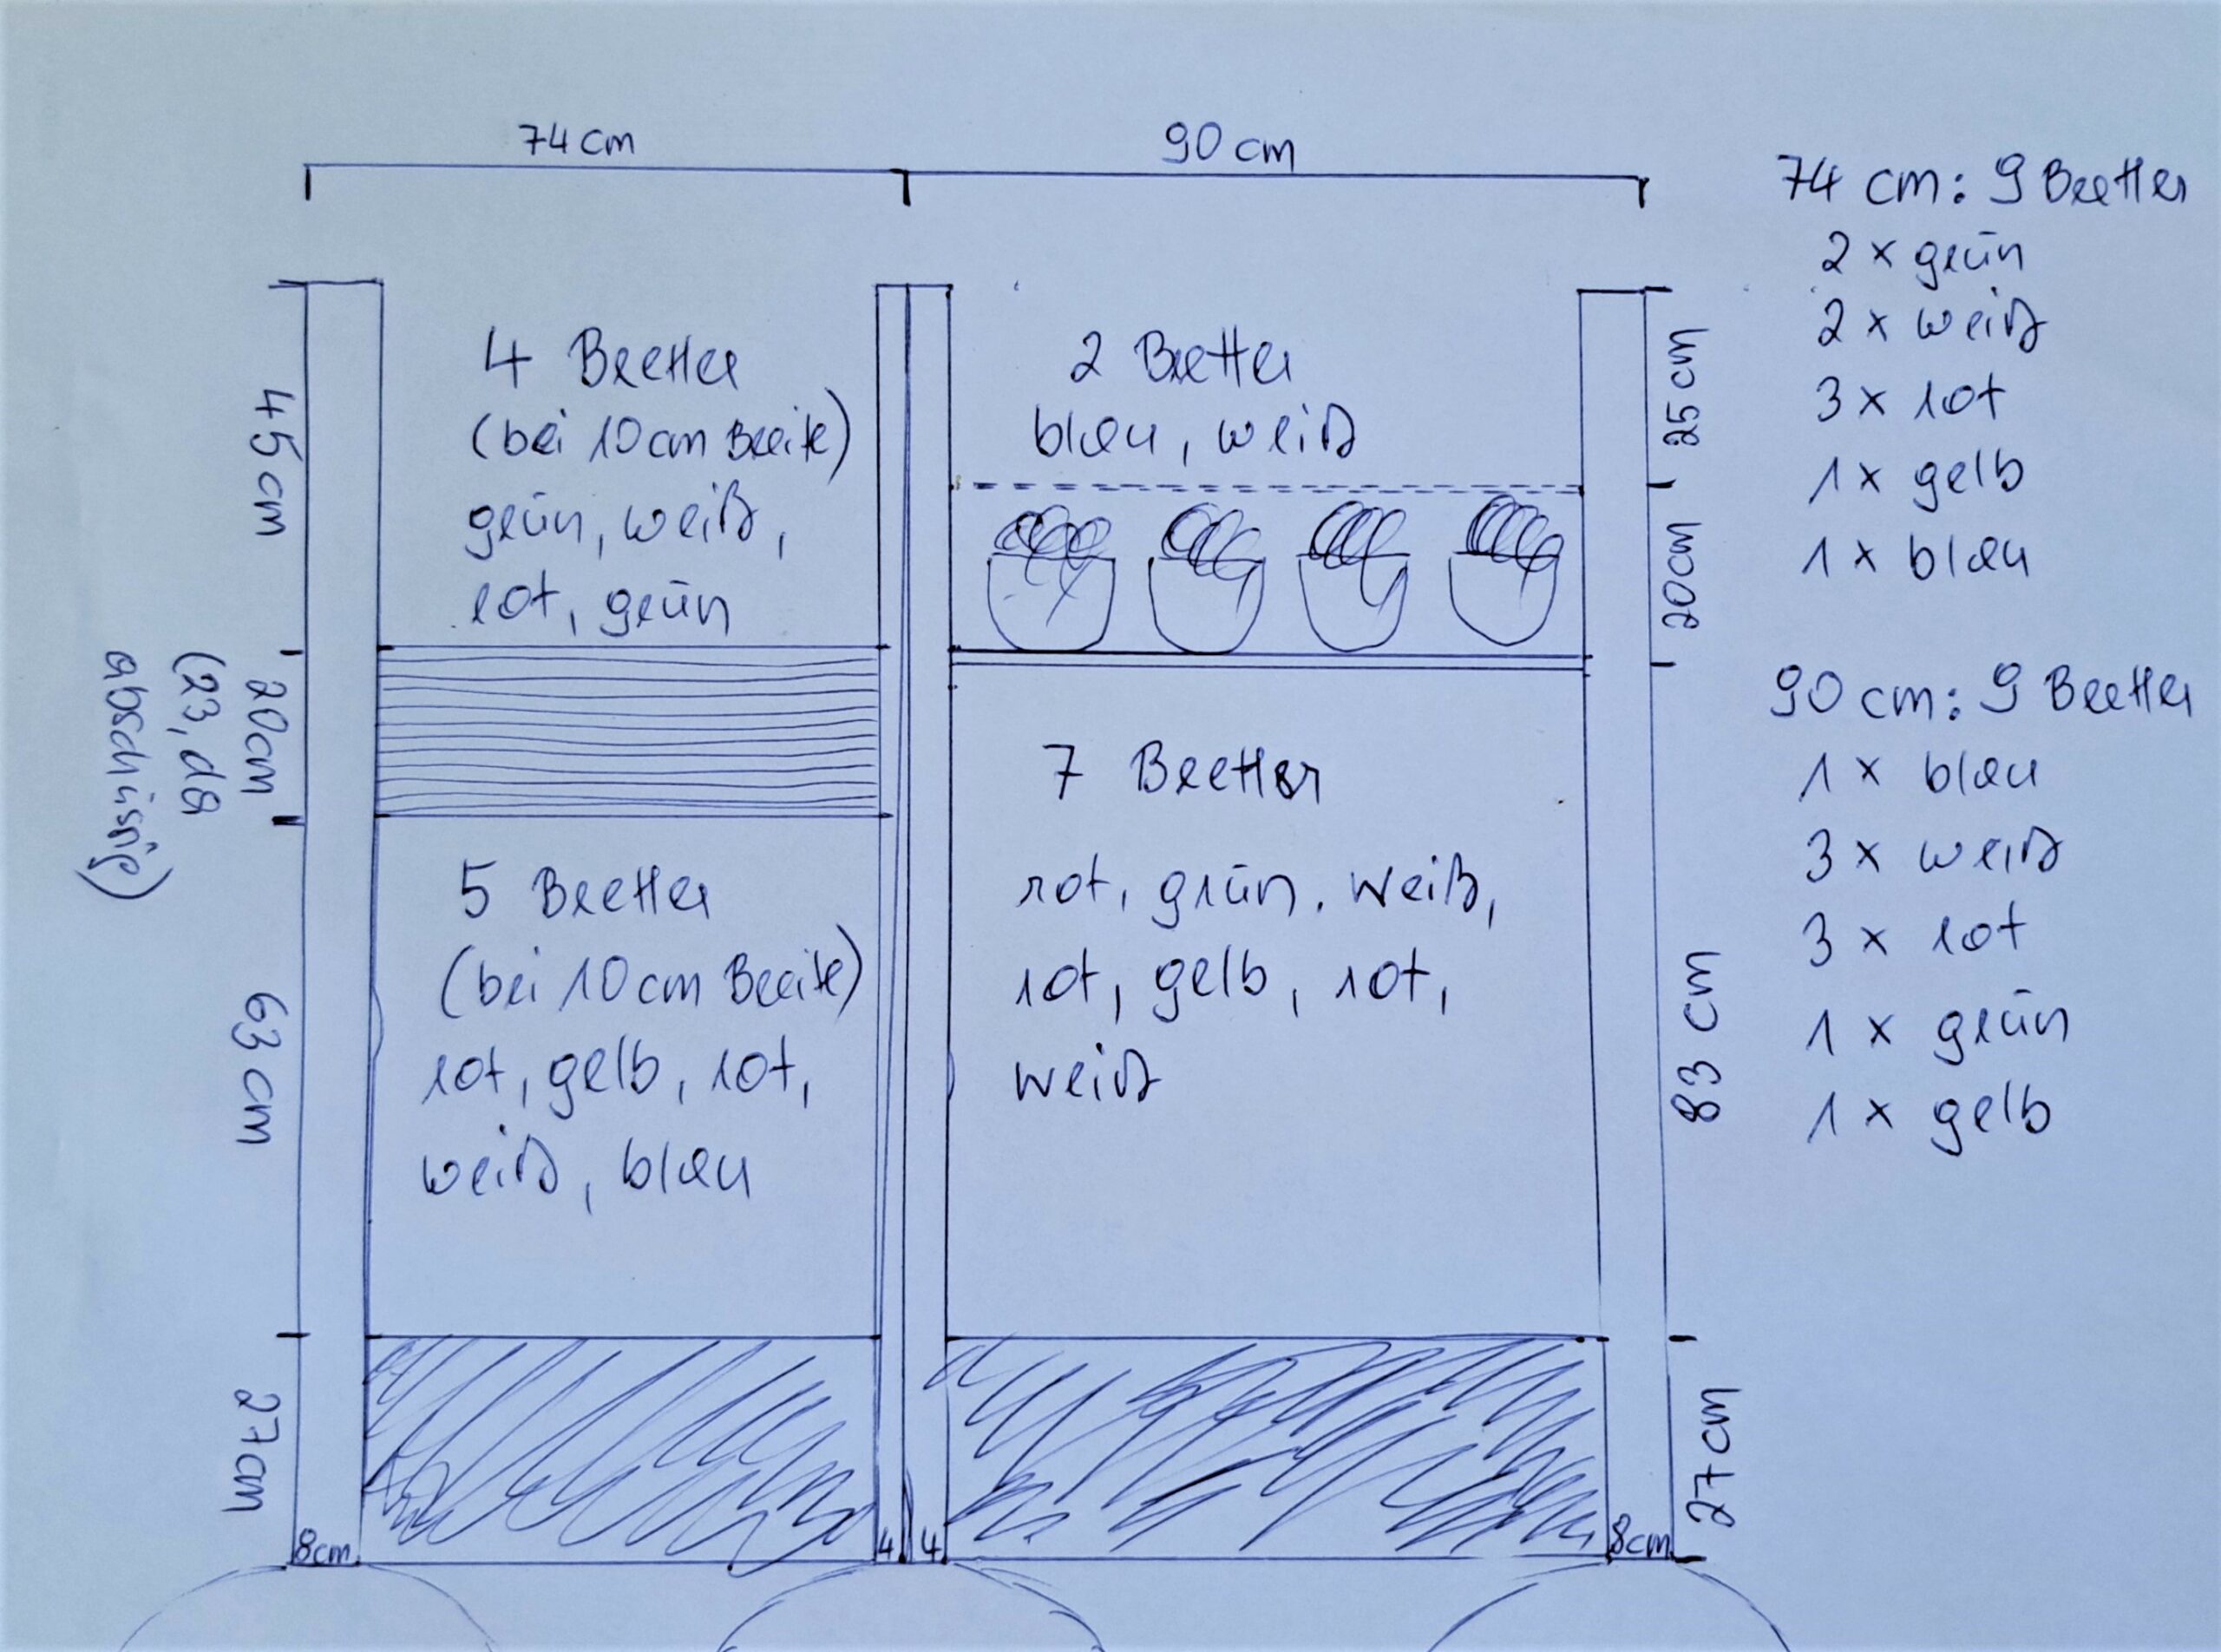 74 cm
90 cm
45 cm
20 cm
(23, da
abschüssig)
63 cm
27 cm
4 Bretter
(bei 10 cm Breite)
grün, weiß,
rot, grün
5 Bretter
(bei 10 cm Breite)
rot, gelb, rot,
weiß, blau
2 Bretter
blau, weiß
7 Bretter
rot, grün. weiß,
rot, gelb, rot,
weiß
25 cm
20 cm
83 cm
27 cm
8 cm
4 4
8 cm
74 cm: 9 Bretter
2 x grün
2 x weiß
3 x rot
1 x gelb
1 x blau
90 cm: 9 Bretter
1 x blau
3 x weiß
3 x rot
1 x grün
1 x gelb